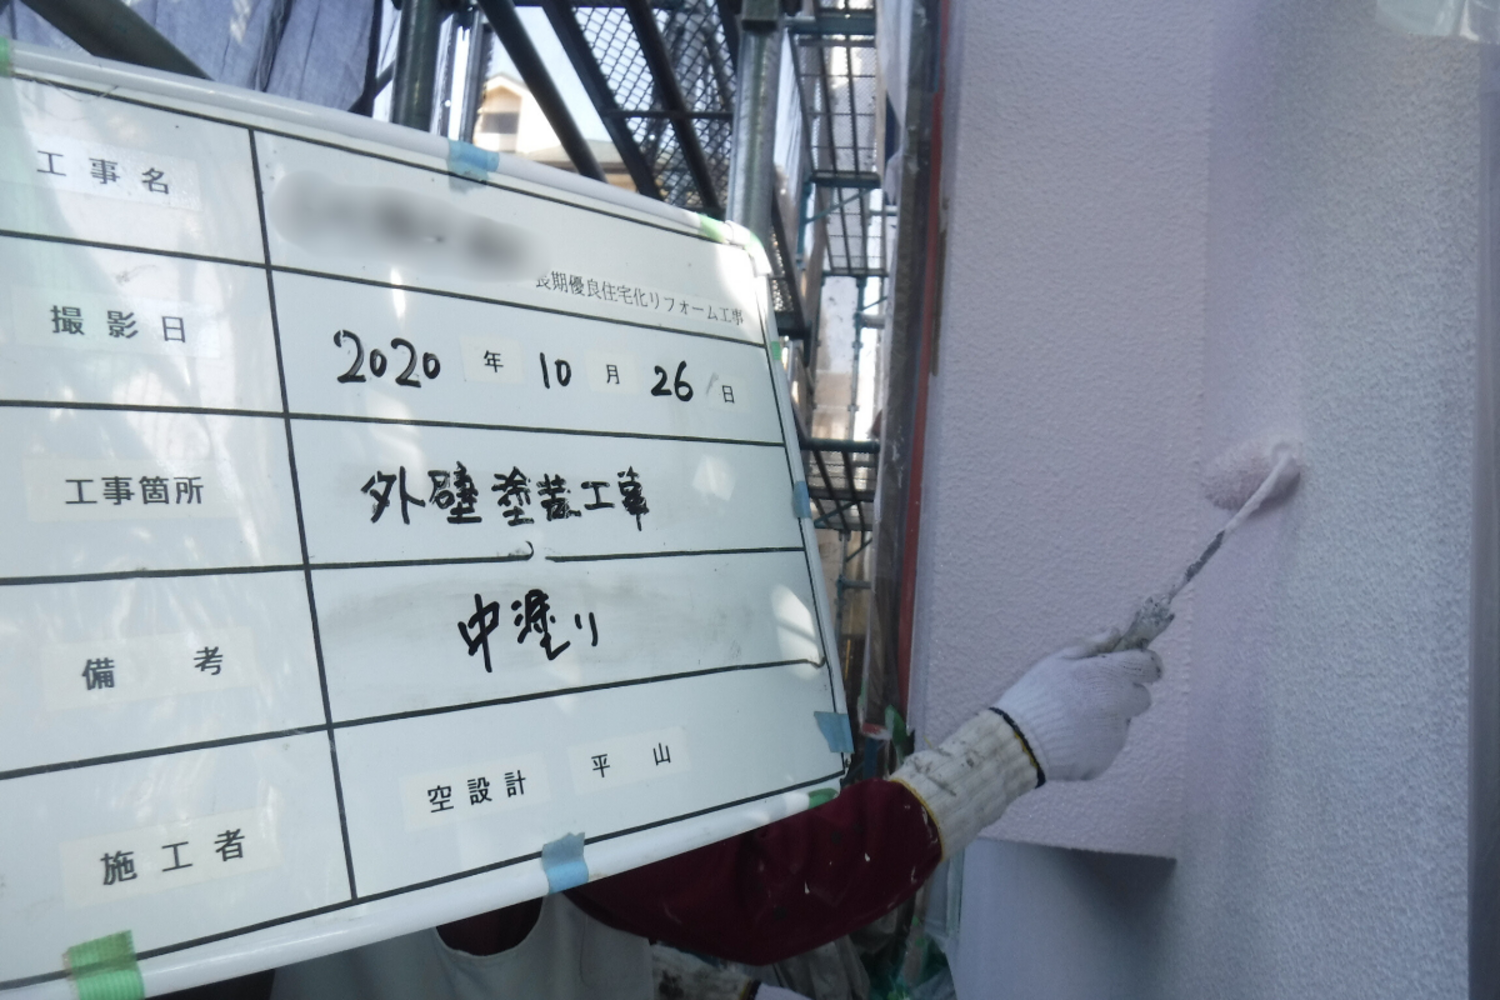 工事名
長期優良住宅化リフォーム工事
撮影日 2020年10月26日
工事箇所 外壁塗装工事
備考 中塗り
施工者 空設計 平山